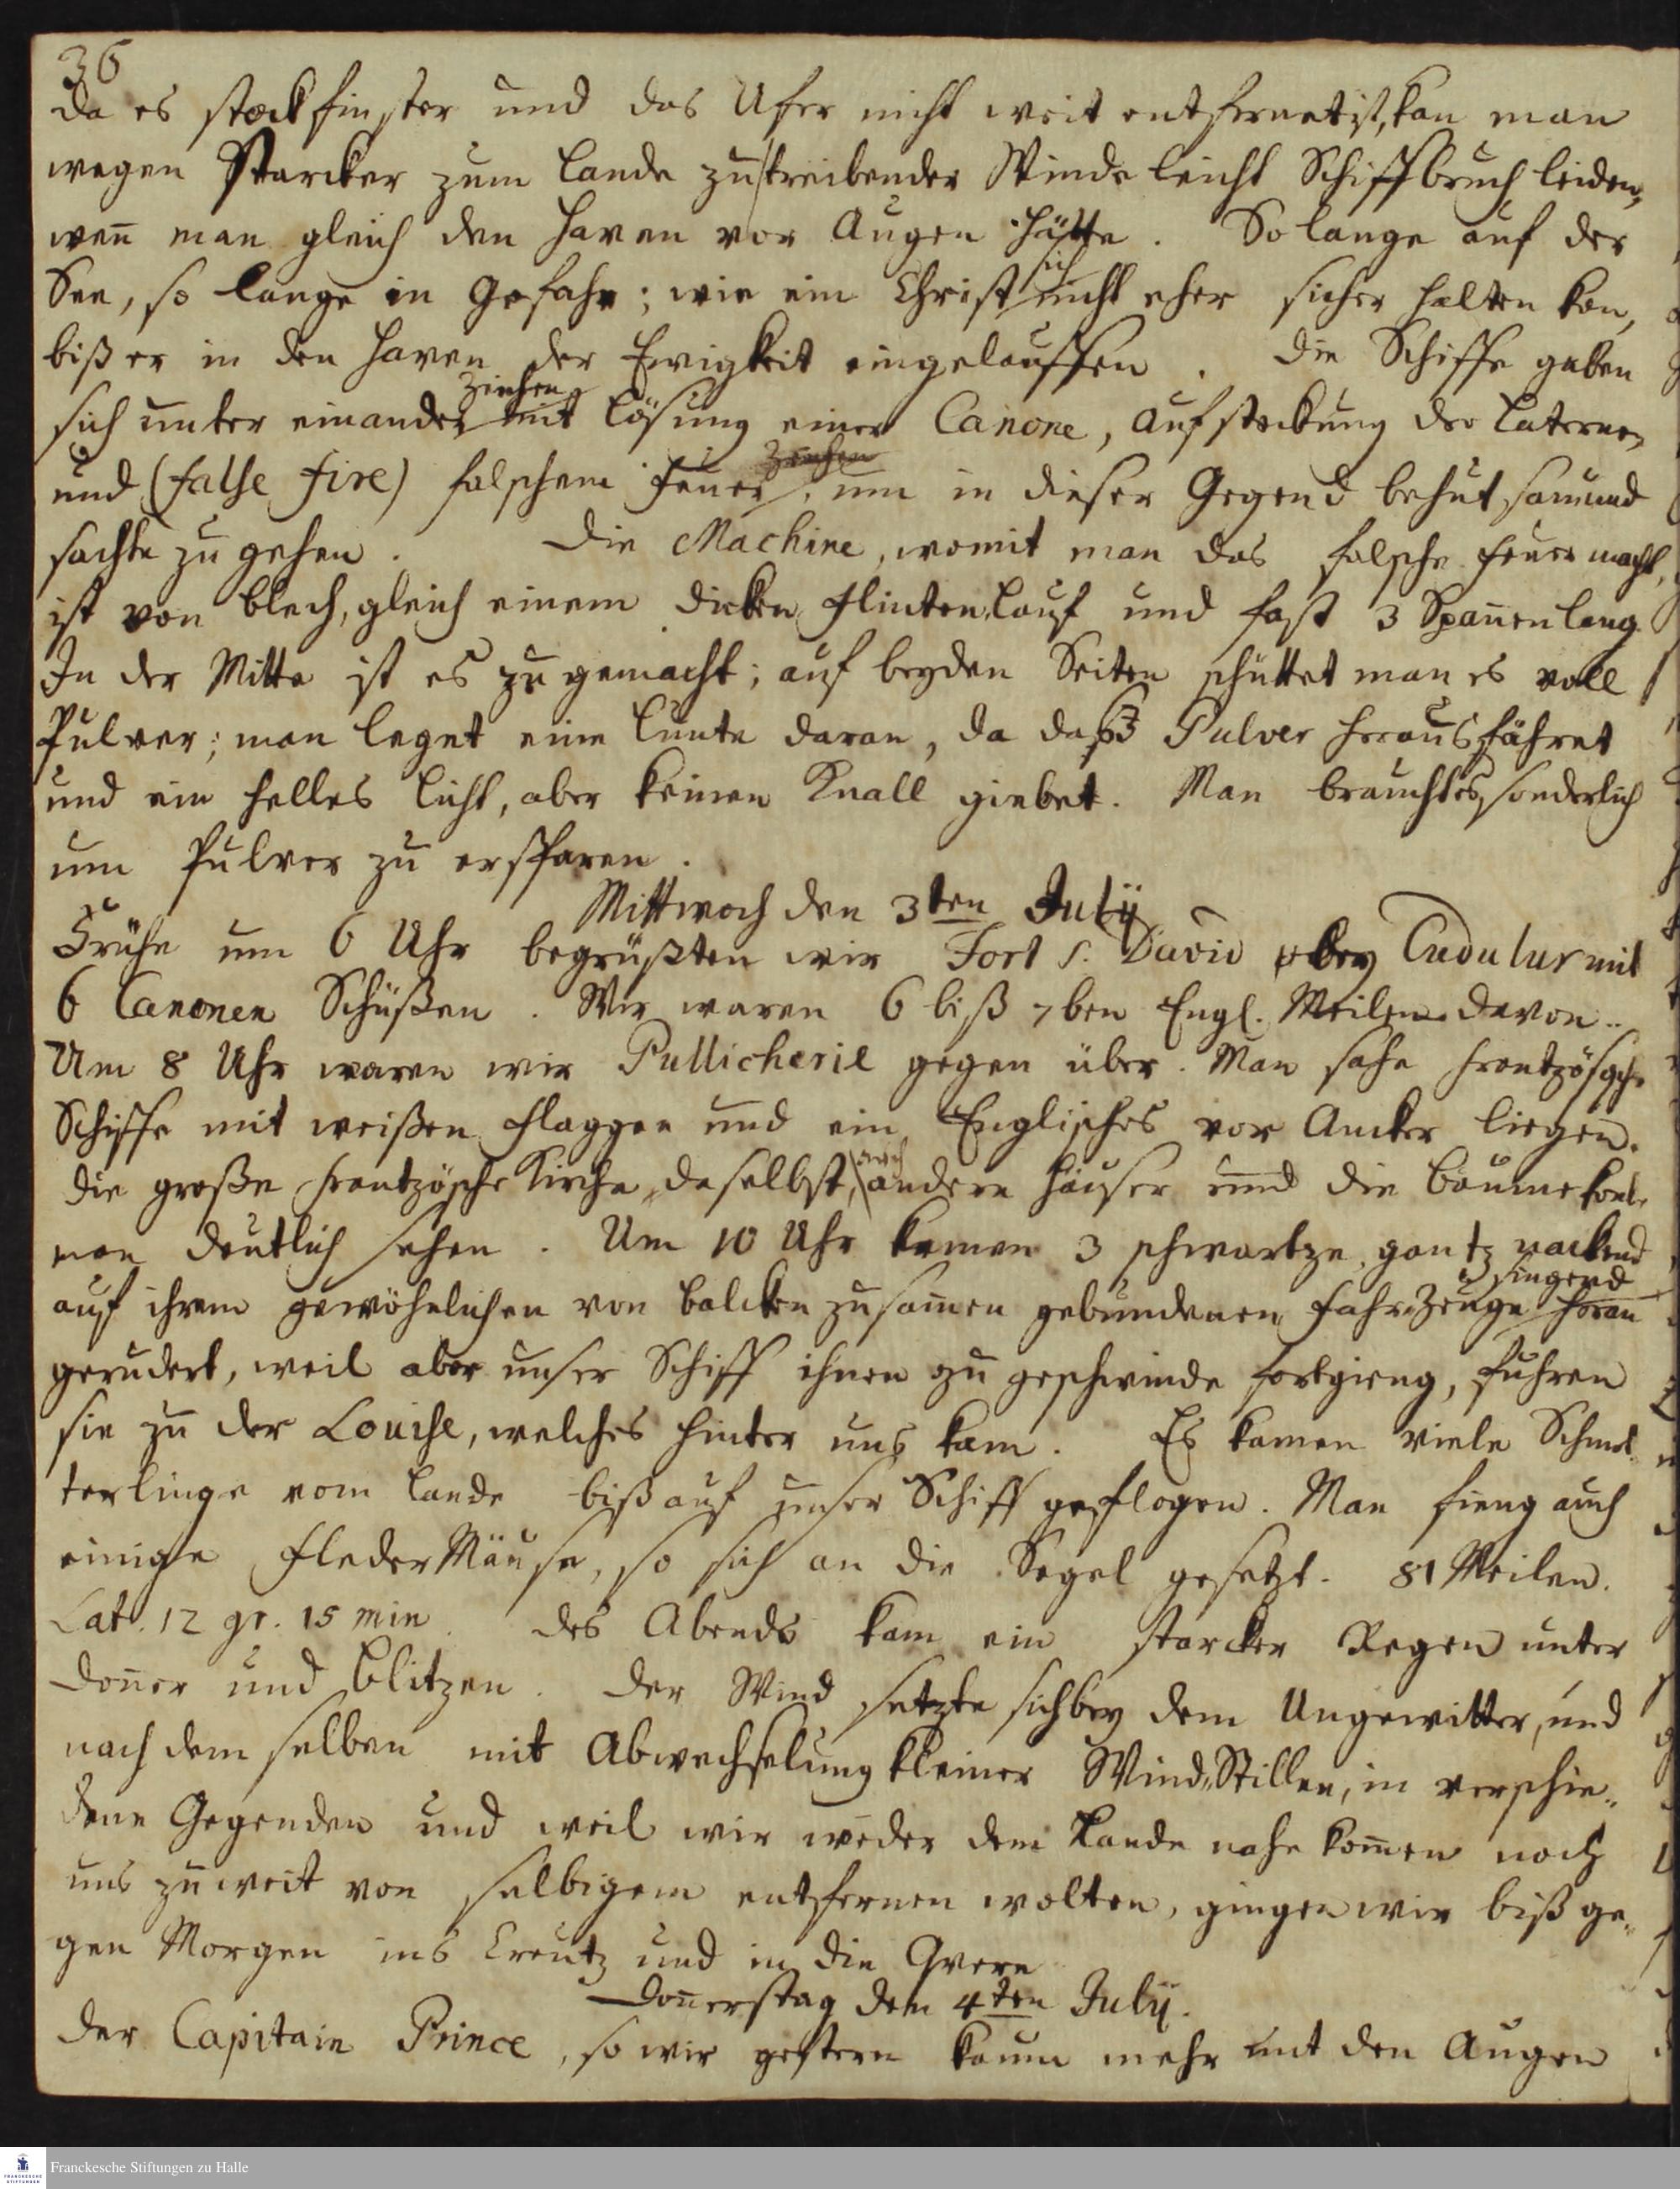 36
da es stockfinster und das Ufer nicht weit entfernet ist, kan man
wegen starcker zum Lande zutreibender Winde leicht Schiffbruch leiden,
weñ man gleich den Haven vor Augen hätte. So lange auf der
See, so lange in Gefahr; wie ein Christ sich nicht eher sicher halten kan,
biß er in den Haven der Ewigkeit eingelauffen. Die Schiffe gaben
sich unter einander Zeichen mit Lösung einer Canone, Aufsteckung der Laternen
und (false fire) falschem Feuer, um in dieser Gegend behutsam und
sachte zu gehen. Die Machine, womit man das falsche Feuer macht,
ist von Blech, gleich einem dicken Flintenlauf und fast 3 Spañen lang.
In der Mitte ist es zu gemacht; auf beyden Seiten schüttet man es voll
Pulver; man leget eine Lunte daran, da daß Pulver herausfähret
und ein helles Licht, aber keinen Knall giebet. Man braucht es sonderlich
um Pulver zu ersparen.
Mittwoch den 3ten Julij
Frühe um 6 Uhr begrüßten wir Fort S. David bey Cudulur mit
6 Canonen Schüßen. Wir waren 6 biß 7ben Engl. Meilen davon.
Um 8 Uhr waren wir Pullicherie gegen über. Man sahe frantzösische
Schiffe mit weißen Flaggen und ein Englisches vor Ancker liegen.
Die große frantzösche Kirche daselbst, auch andere Häuser und die Bäume kont
man deutlich sehen. Um 10 Uhr kamen 3 schwartze, gantz nackend
auf ihrem gewöhnlichen von Balcken zusam̃en gebundenen Fahrzeuge singend heran
gerudert, weil aber unser Schiff ihnen zu geschwinde fortgieng, fuhren
sie zu der Louise, welches hinter uns kam. Es kamen viele Schmet-
terlinge vom Lande biß auf unser Schiff geflogen. Man fieng auch
einige FlederMäuse, so sich an die Segel gesetzt. 81 Meilen.
Lat. 12 gr. 15 min. Des Abends kam ein starcker Regen unter
Doñer und Blitzen. Der Wind setzte sich bey dem Ungewitter, und
nach demselben mit Abwechselung kleiner Wind-Stillen, in verschie-
dene Gegenden und weil wir weder dem Lande nahe kom̃en noch
uns zu weit von selbigem entfernen wolten, gingen wir biß ge-
gen Morgen ins Creutz und in die Qvere
Doñerstag den 4ten Julij.
Der Capitain Prince, so wir gestern kaum mehr mit den Augen
Franckesche Stiftungen zu Halle